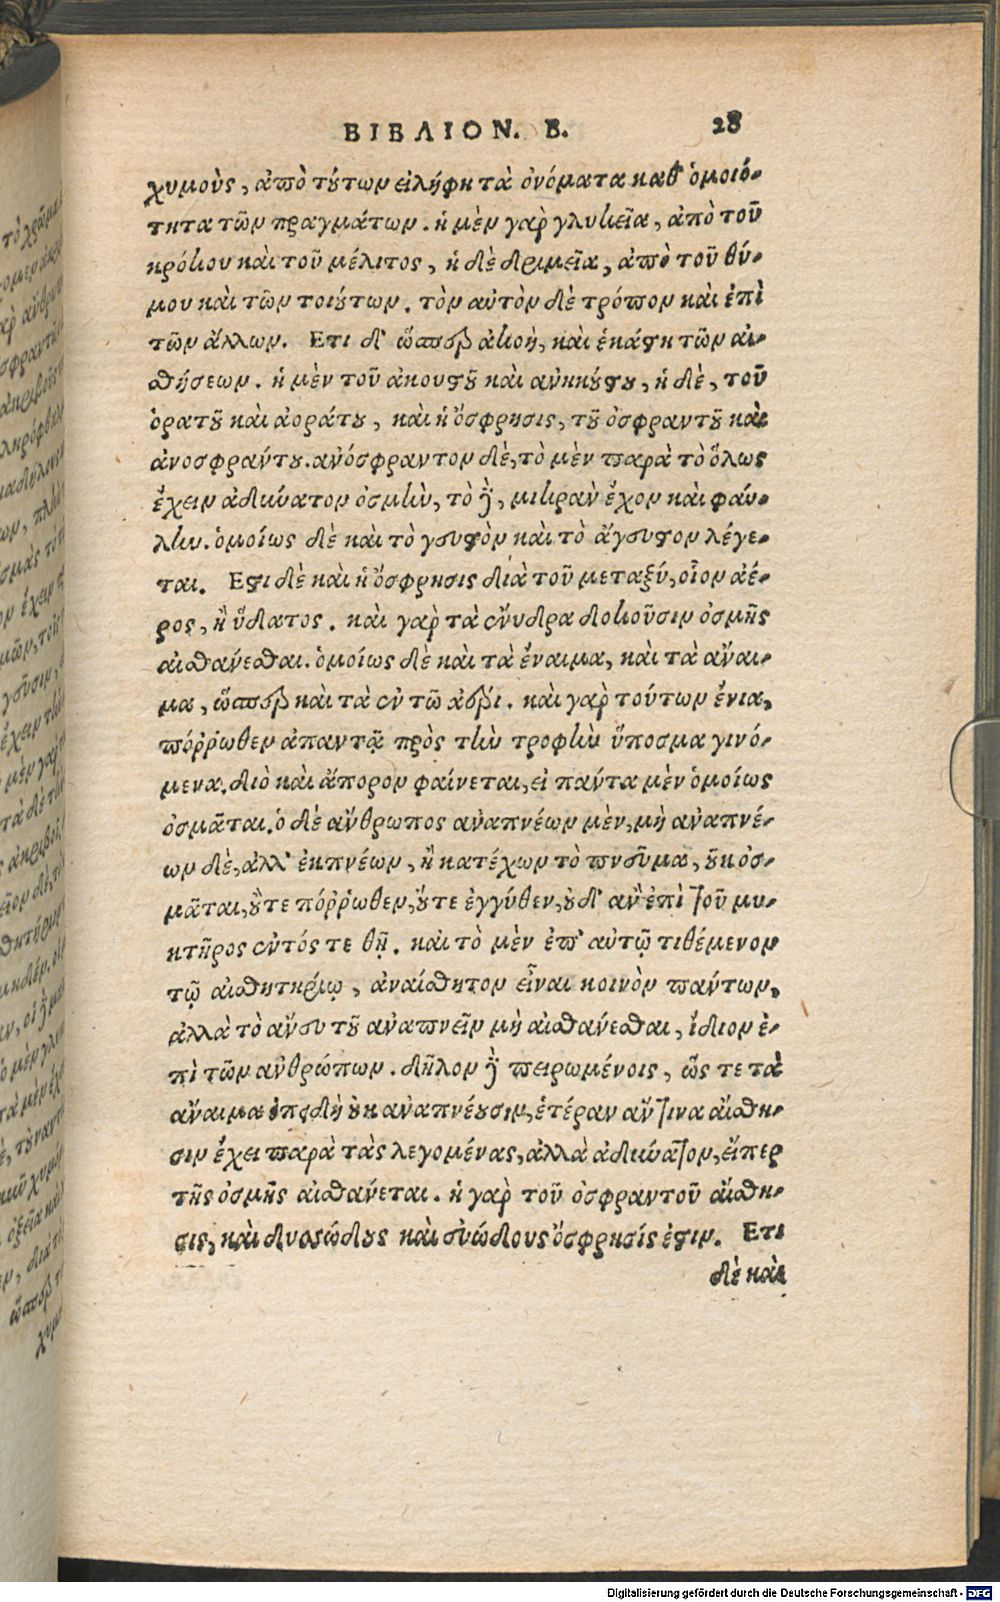 ΒΙΒΛΙΟΝ. Β. 28
χυμοὺς, ἀπὸ τούτων εἰλήφη τὰ ὀνόματα καθ' ὁμοιό-
τητα τῶν πραγμάτων. ἡ μὲν γὰρ γλυκεῖα, ἀπὸ τοῦ
κρόκου καὶ τοῦ μέλιτος, ἡ δὲ δριμεῖα, ἀπὸ τοῦ θύ-
μου καὶ τῶν τοιούτων. τὸν αὐτὸν δὲ τρόπον καὶ ἐπὶ
τῶν ἄλλων. Ετι δ' ὥσπερ ἀκοὴ, καὶ ἑκάστη τῶν αἰ-
σθήσεων. ἡ μὲν τοῦ ἀκουστοῦ καὶ ἀνηκούστου, ἡ δὲ, τοῦ
ὁρατοῦ καὶ ἀοράτου, καὶ ἡ ὄσφρησις, τοῦ ὀσφραντοῦ καὶ
ἀνοσφράντου. ἀνόσφραντον δὲ, τὸ μὲν παρὰ τὸ ὅλως
ἔχειν ἀδύνατον ὀσμὴν, τὸ δὲ, μικρὰν ἔχον καὶ φαύ-
λην. ὁμοίως δὲ καὶ τὸ γευστὸν καὶ τὸ ἄγευστον λέγε-
ται. Εστι δὲ καὶ ἡ ὄσφρησις διὰ τοῦ μεταξύ, οἷον ἀέ-
ρος, ἢ ὕδατος. καὶ γὰρ τὰ ἔνυδρα δοκοῦσιν ὀσμῆς
αἰσθάνεσθαι. ὁμοίως δὲ καὶ τὰ ἔναιμα, καὶ τὰ ἄναι-
μα, ὥσπερ καὶ τὰ ἐν τῶ ἀέρι. καὶ γὰρ τούτων ἔνια,
πόῤῥωθεν ἀπαντᾷ πρὸς τὴν τροφὴν ὕποσμα γινό-
μενα. διὸ καὶ ἄπορον φαίνεται, εἰ πάντα μὲν ὁμοίως
ὀσμᾶται. ὁ δὲ ἄνθρωπος ἀναπνέων μὲν, μὴ ἀναπνέ-
ων δὲ, ἀλλ' ἐκπνέων, ἢ κατέχων τὸ πνεῦμα, οὐκ ὀσ-
μᾶται, οὔτε πόῤῥωθεν, οὔτε ἐγγύθεν, οὐδ' ἂν ἐπὶ τοῦ μυ-
κτῆρος ἐντός τε θῇ. καὶ τὸ μὲν ἐπ' αὐτῷ τιθέμενον
τῷ αἰσθητηρίῳ, ἀναίσθητον εἶναι κοινὸν πάντων,
ἀλλὰ τὸ ἄνευ τοῦ ἀναπνεῖν μὴ αἰσθάνεσθαι, ἴδιον ἐ-
πὶ τῶν ἀνθρώπων. δῆλον δὲ πειρωμένοις, ὥς τε τὰ
ἄναιμα ἐπειδὴ οὐκ ἀναπνέουσιν, ἑτέραν ἄν τινα αἴσθη-
σιν ἔχει παρὰ τὰς λεγομένας, ἀλλὰ ἀδύνατον, εἴπερ
τῆς ὀσμῆς αἰσθάνεται. ἡ γὰρ τοῦ ὀσφραντοῦ αἴσθη-
σις, καὶ δυσώδους καὶ εὐώδους ὄσφρησίς ἐστιν. Ετι
δὲ καὶ
Digitalisierung gefördert durch die Deutsche Forschungsgemeinschaft - DFG